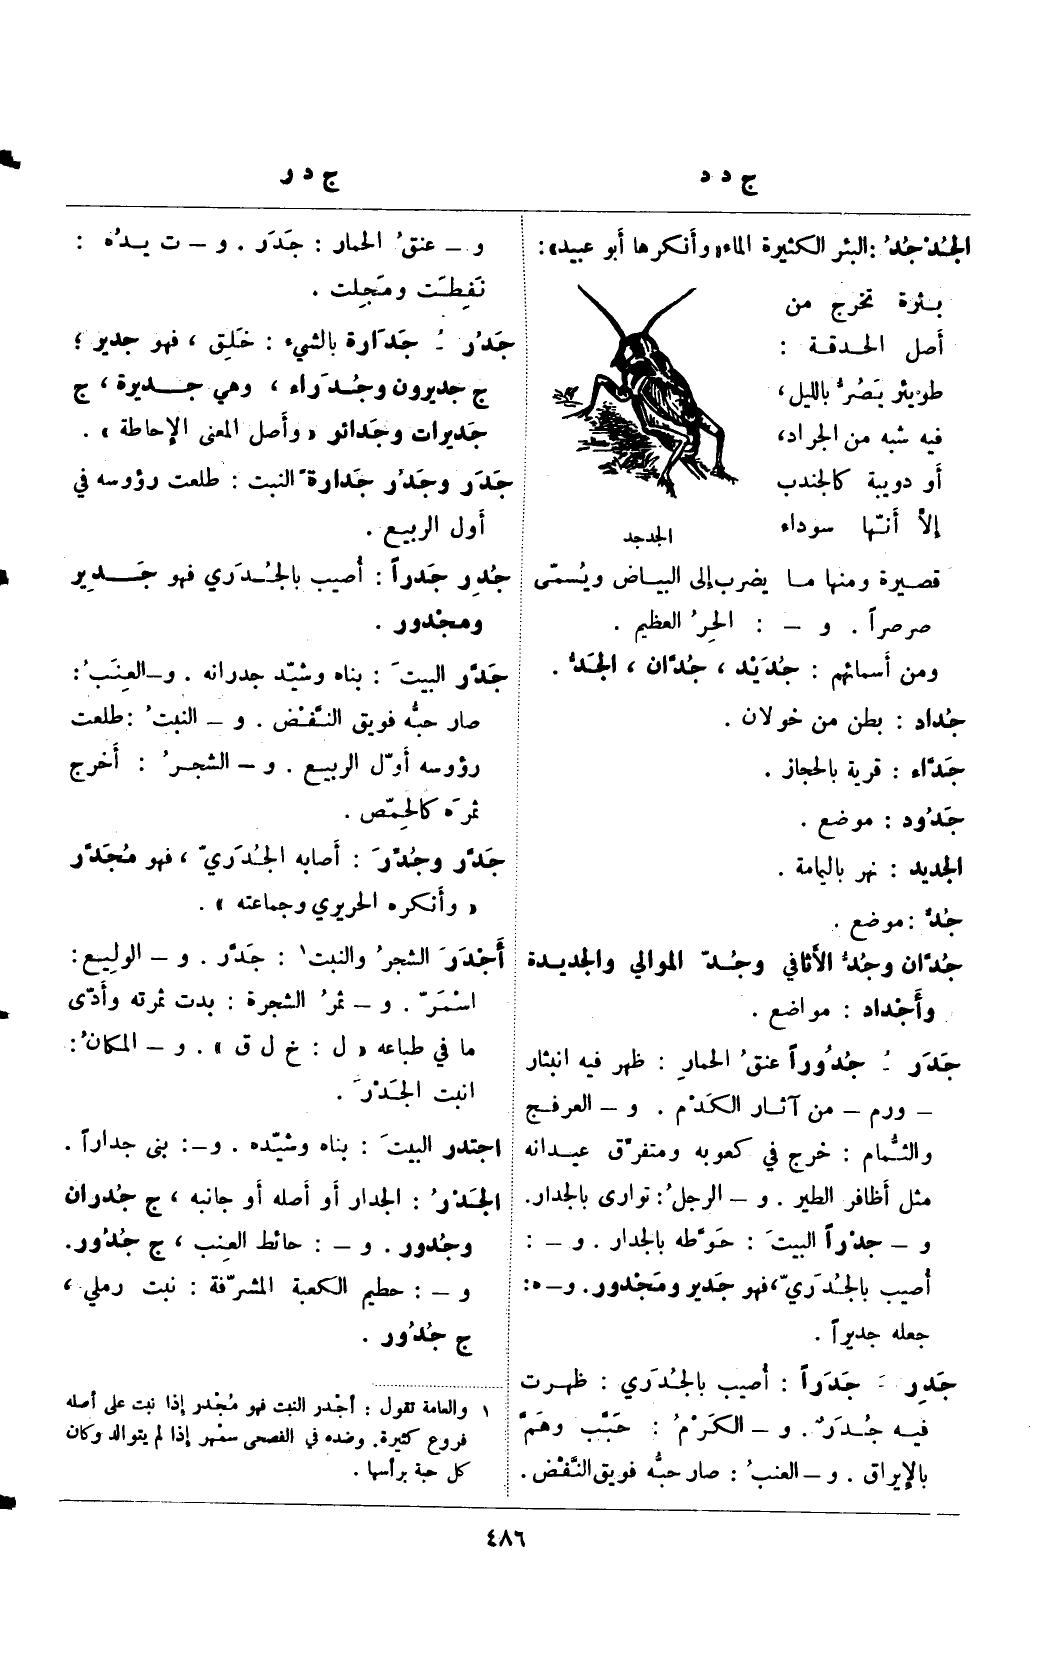 ج د د
الجُدْجُدُ : البئر الكثيرة الماء « وأنكرها أبو عبيد » :
بثرة تخرج من
أصل الحدقة :
طويئر يَصُرُّ بالليل ،
فيه شبه من الجراد ،
أو دويبة كالجندب
إلاّ أنّها سوداء
الجدجد
قصيرة ومنها ما يضرب إلى البياض ويُسمّى
صرصراً . و – : الحِرُ العظيم .
ومن أسمائهم : جُدَيْد ، جُدّان ، الجَدُّ .
جُداد : بطن من خولان .
جَدّاء : قرية بالحجاز .
جَدُود : موضع .
الجديد : نهر باليمامة .
جُدُّ : موضع .
جُدّان وجُدُّ الأثافي وجُدّ الموالي والجديدة
وأَجْداد : مواضع .
جَدَرَ ـُ جُدُوراً عنقُ الحمارِ : ظهر فيه انبثار
– ورم – من آثار الكَدْم . و – العرفج
والثُّمام : خرج في كعوبه ومتفرّق عيدانه
مثل أظافر الطير . و – الرجلُ : توارى بالجدار .
و – جدْراً البيتَ : حَوّطه بالجدار . و – :
أُصيب بالجُدَريّ ، فهو جَدير ومَجْدور . و – ه :
جعله جديراً .
جَدِر ـَ جَدَراً : أُصيب بالجُدَري : ظهرت
فيه جُدَرٌ . و – الكَرْمُ : حَبَّب وهَمَّ
بالإيراق . و – العنبُ : صار حبُّه فويق النَّفْض .
ج د ر
و – عنقُ الحمار : جَدَر . و – ت يدُه :
نَفِطَت ومَجِلت .
جَدُر ـُ جَدَارة بالشيء : خَلَق ، فهو جدير ؛
ج جديرون وجُدَراء ، وهي جديرة ، ج
جَديرات وجَدائر « وأصل المعنى الإحاطة » .
جَدَر وجَدُر جَدارةً النبت : طلعت رؤوسه في
أول الربيع .
جُدِر جَدراً : أُصيب بالجُدَري فهو جَدِير
ومجْدور .
جَدّر البيتَ : بناه وشيّد جدرانه . و – العِنَبُ :
صار حبُّه فويق النَّفْض . و – النبتُ : طلعت
رؤوسه أوّل الربيع . و – الشجرُ : أخرج
ثمرَه كالحِمّص .
جَدَّر وجُدِّرَ : أصابه الجُدَريّ ، فهو مُجَدَّر
« وأنكره الحريري وجماعته » .
أَجْدَرَ الشجرُ والنبت١ : جَدَّر . و – الوليع :
اسْمَرّ . و – ثمرُ الشجرة : بدت ثمرته وأدّى
ما في طباعه « ل : خ ل ق » . و – المكانُ :
انبت الجَدْرَ .
اجتدر البيتَ : بناه وشيّده . و – : بنى جداراً .
الجَدْرُ : الجدار أو أصله أو جانبه ، ج جُدران
وجُدور . و – : حائط العِنب ، ج جُدُور .
و – : حطيم الكعبة المشرّفة : نبت رملي ،
ج جُدُور .
١ والعامة تقول : أجْدر النبت فهو مُجْدر إذا نبت على أصله
فروع كثيرة . وضده في الفصحى سمْهر إذا لم يتوالد وكان
كل حبة برأسها .
٤٨٦